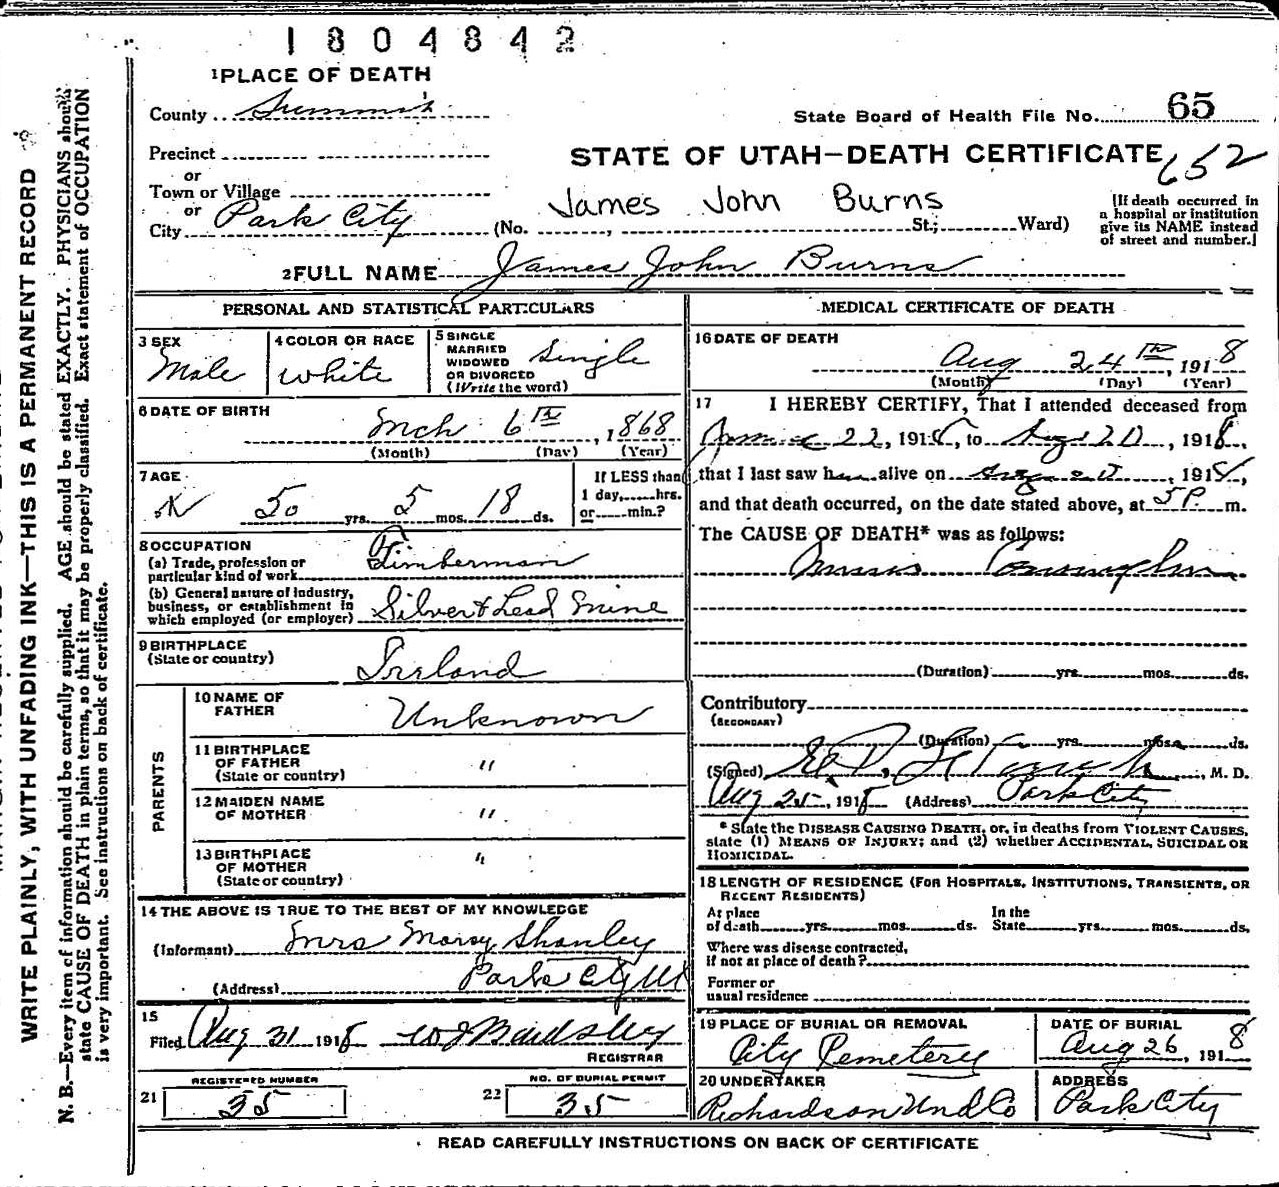 1804842
1PLACE OF DEATH
County Summit
State Board of Health File No. 65
Precinct
STATE OF UTAH—DEATH CERTIFICATE
652
or
Town or Village
or
City Park City
James John Burns
(No. , St.; Ward)
[If death occurred in
a hospital or institution
give its NAME instead
of street and number.]
2FULL NAME James John Burns
PERSONAL AND STATISTICAL PARTICULARS
3 SEX
Male
4 COLOR OR RACE
White
5 SINGLE
MARRIED
WIDOWED
OR DIVORCED
(Write the word)
Single
6 DATE OF BIRTH
Mch 6th, 1868
(Month) (Day) (Year)
7 AGE
50 yrs. 5 mos. 18 ds.
If LESS than
1 day, hrs.
or min.?
8 OCCUPATION
(a) Trade, profession or
particular kind of work Timberman
(b) General nature of industry,
business, or establishment in
which employed (or employer) Silver & Lead Mine
9 BIRTHPLACE
(State or country)
Ireland
PARENTS
10 NAME OF
FATHER
Unknown
11 BIRTHPLACE
OF FATHER
(State or country)
"
12 MAIDEN NAME
OF MOTHER
"
13 BIRTHPLACE
OF MOTHER
(State or country)
"
14 THE ABOVE IS TRUE TO THE BEST OF MY KNOWLEDGE
(Informant) Mrs Shanley
(Address) Park City Ut
15
Filed Aug 31 1918
REGISTRAR
21
REGISTERED NUMBER
35
22
NO. OF BURIAL PERMIT
35
MEDICAL CERTIFICATE OF DEATH
16 DATE OF DEATH
Aug 24th, 1918
(Month) (Day) (Year)
17 I HEREBY CERTIFY, That I attended deceased from
22, 1918, to Aug 20, 1918,
that I last saw him alive on Aug 20, 1918,
and that death occurred, on the date stated above, at 5 P. m.
The CAUSE OF DEATH* was as follows:
(Duration) yrs. mos. ds.
Contributory
(SECONDARY)
(Duration) yrs. mos. ds.
(Signed) M. D.
Aug 25, 1918 (Address) Park City
* State the DISEASE CAUSING DEATH, or, in deaths from VIOLENT CAUSES,
state (1) MEANS OF INJURY; and (2) whether ACCIDENTAL, SUICIDAL OR
HOMICIDAL.
18 LENGTH OF RESIDENCE (FOR HOSPITALS, INSTITUTIONS, TRANSIENTS, OR
RECENT RESIDENTS)
At place
of death yrs. mos. ds.
In the
State yrs. mos. ds.
Where was disease contracted,
if not at place of death?
Former or
usual residence
19 PLACE OF BURIAL OR REMOVAL
City Cemetery
DATE OF BURIAL
Aug 26, 1918
20 UNDERTAKER
Richardson Und Co
ADDRESS
Park City
READ CAREFULLY INSTRUCTIONS ON BACK OF CERTIFICATE
WRITE PLAINLY, WITH UNFADING INK—THIS IS A PERMANENT RECORD
N. B.—Every item of information should be carefully supplied. AGE should be stated EXACTLY. PHYSICIANS should
state CAUSE OF DEATH in plain terms, so that it may be properly classified. Exact statement of OCCUPATION
is very important. See instructions on back of certificate.